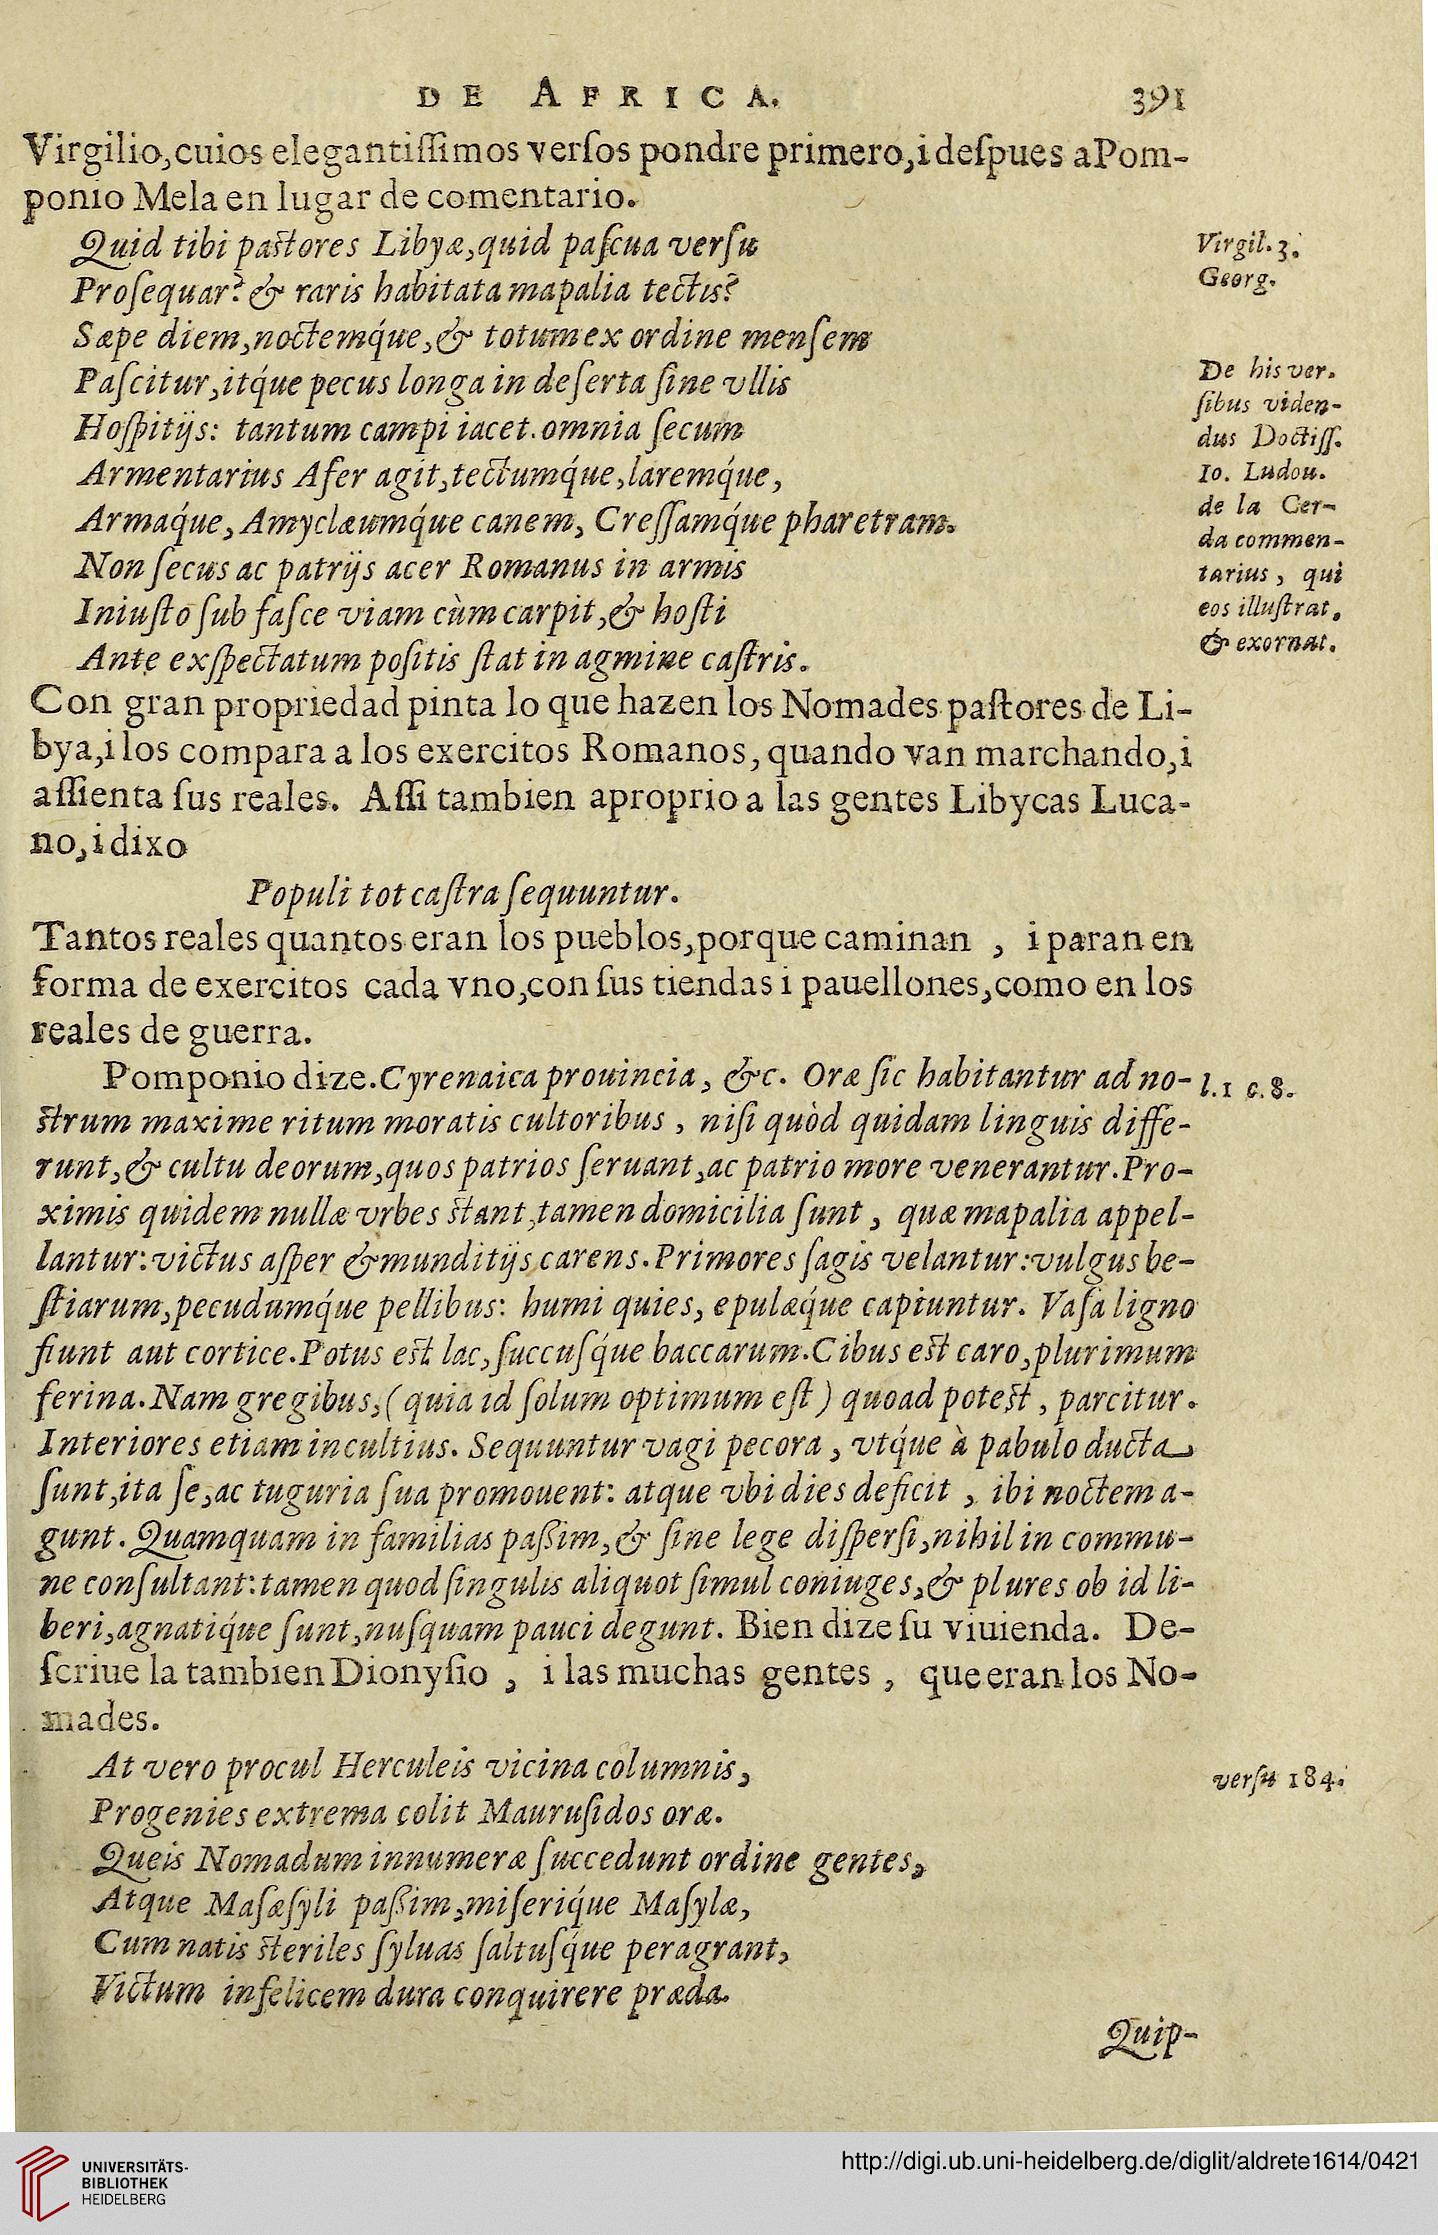 DE AFRICA. 391
Virgilio,cuios elegantiſſimos verſos pondre primero,i deſpues a Pom-
ponio Mela en lugar de comentario.
Quid tibi paſtores Libyæ,quid paſcua verſu
Proſequar? & raris habitata mapalia tectis?
Sæpe diem,noctemq́ue,& totum ex ordine menſem
Paſcitur,itq́ue pecus longa in deſerta ſine vllis
Hoſpitijs: tantum campi iacet. omnia ſecum
Armentarius Afer agit,tectumq́ue,laremq́ue,
Armaq́ue, Amyclæumq́ue canem, Creſſamq́ue pharetram.
Non ſecus ac patrijs acer Romanus in armis
Iniuſto ſub faſce viam cùm carpit,& hoſti
Ante exſpectatum poſitis ſtat in agmine caſtris.
Virgil. 3.
Georg.
De his ver.
ſibus viden-
dus Doctiſſ.
Io. Ludou.
de la Cer-
da commen-
tarius, qui
eos illuſtrat,
& exornat.
Con gran propriedad pinta lo que hazen los Nomades paſtores de Li-
bya,i los compara a los exercitos Romanos, quando van marchando,i
aſſienta ſus reales. Aſſi tambien aproprio a las gentes Libycas Luca-
no,i dixo
Populi tot caſtra ſequuntur.
Tantos reales quantos eran los pueblos,porque caminan , i paran en
forma de exercitos cada vno,con ſus tiendas i pauellones,como en los
reales de guerra.
Pomponio dize. Cyrenaica prouincia, &c. Oræ ſic habitantur ad no-
l.1 c.8.
ſtrum maxime ritum moratis cultoribus , niſi quòd quidam linguis diffe-
runt,& cultu deorum,quos patrios ſeruant,ac patrio more venerantur. Pro-
ximis quidem nullæ vrbes ſtant,tamen domicilia ſunt , quæ mapalia appel-
lantur: victus aſper & munditijs carens. Primores ſagis velantur: vulgus be-
ſtiarum,pecudumq́ue pellibus: humi quies, epulæq́ue capiuntur. Vaſa ligno
fiunt aut cortice. Potus eſt lac, ſuccuſq́ue baccarum. Cibus eſt caro,plurimum
ferina. Nam gregibus,( quia id ſolum optimum eſt ) quoad poteſt , parcitur.
Interiores etiam incultius. Sequuntur vagi pecora , vtq́ue à pabulo ducta
ſunt,ita ſe,ac tuguria ſua promouent: atque vbi dies deficit , ibi noctem a-
gunt. Quamquam in familias paßim,& ſine lege diſperſi,nihil in commu-
ne conſultant: tamen quod ſingulis aliquot ſimul coniuges,& plures ob id li-
beri,agnatiq́ue ſunt,nuſquam pauci degunt. Bien dize ſu viuienda. De-
ſcriue la tambien Dionyſio , i las muchas gentes , que eran los No-
mades.
At vero procul Herculeis vicina columnis,
Progenies extrema colit Mauruſidos oræ.
Queis Nomadum innumeræ ſuccedunt ordine gentes,
Atque Maſæſyli paßim,miſeriq́ue Maſylæ,
Cum natis ſteriles ſyluas ſaltuſq́ue peragrant,
Victum infelicem dura conquirere præda.
verſu 184.
Quip-
UNIVERSITÄTS-
BIBLIOTHEK
HEIDELBERG
http://digi.ub.uni-heidelberg.de/diglit/aldrete1614/0421